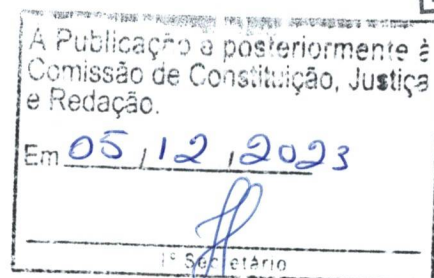 A Publicação e posteriormente à
Comissão de Constituição, Justiça
e Redação.
Em 05 / 12 / 2023
1º Secretário